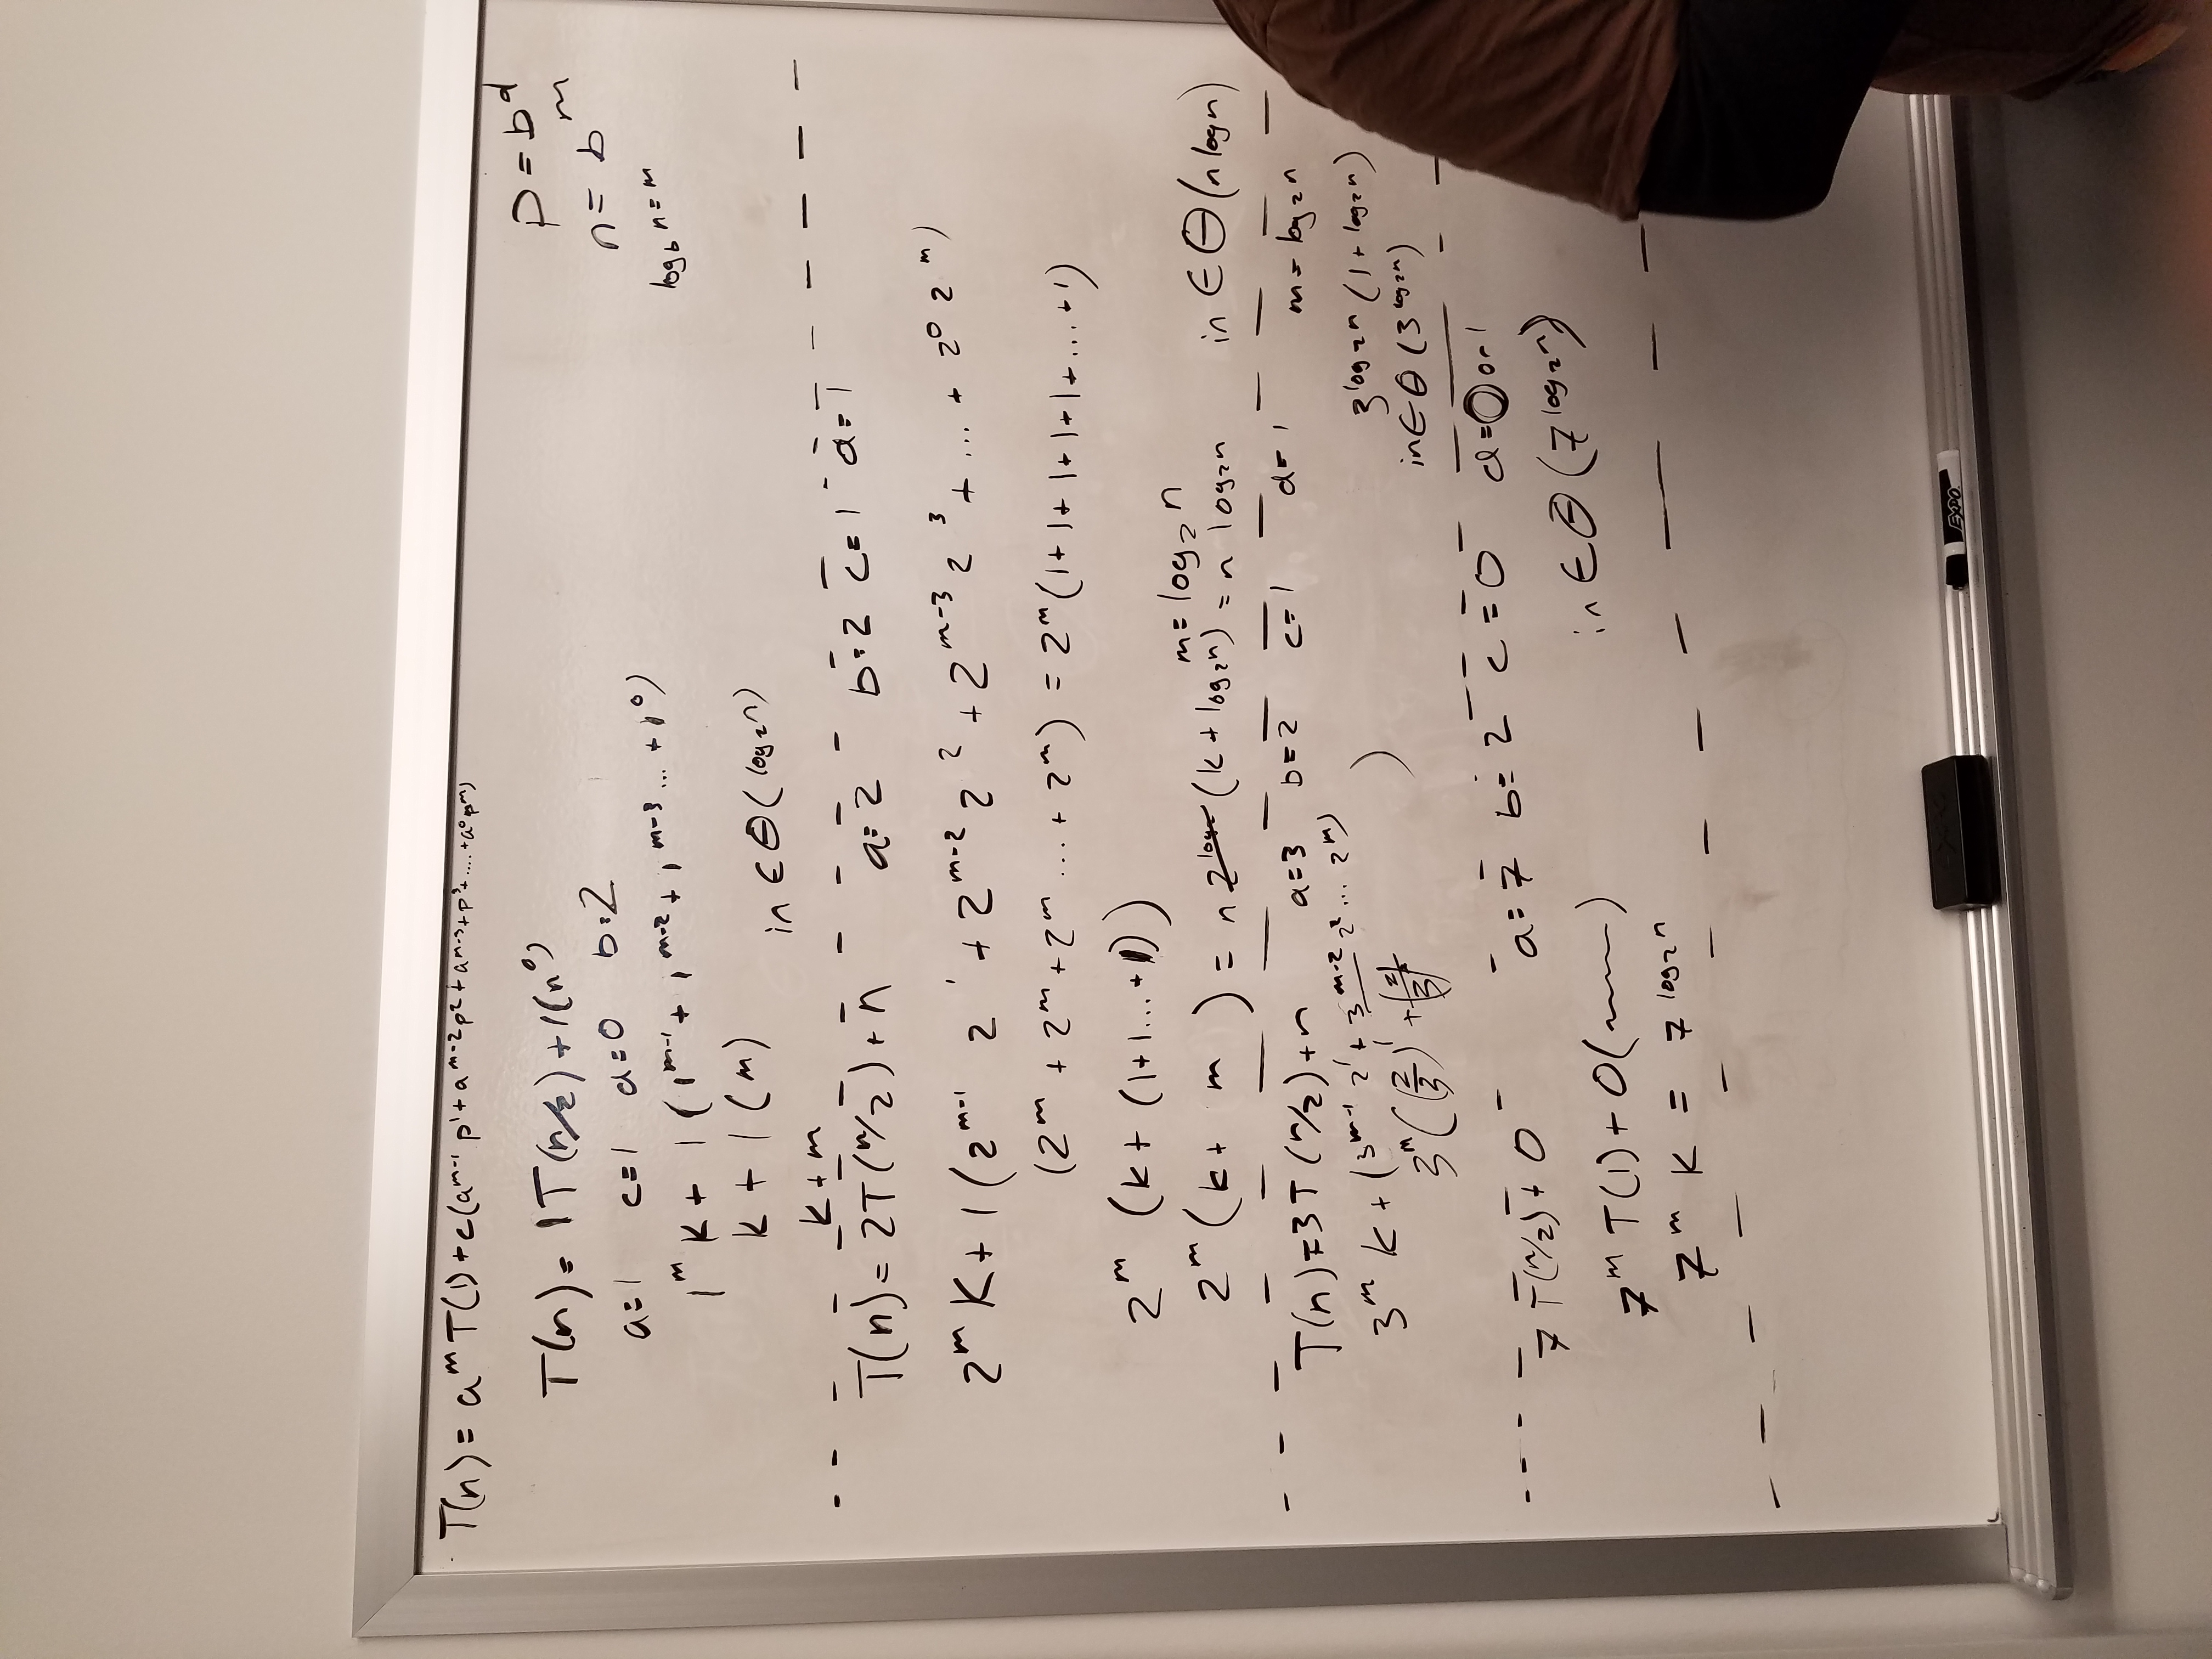 T(n) = a^m T(1) + c(a^{m-1} p^1 + a^{m-2} p^2 + a^{m-3} + p^3 + .... + a^0 p^m)
P = b^d
T(n) = 1T(n/2) + 1(n^0)
n = b^m
a=1 c=1 d=0 b=2
log_b n = m
1^m K + 1(1^{m-1} + 1^{m-2} + 1^{m-3} ... + 1^0)
k + 1(m)
in ∈ Θ(log_2 n)
k + m
T(n) = 2T(n/2) + n a=2 b=2 c=1 d=1
2^m K + 1(2^{m-1} 2^1 + 2^{m-2} 2^2 + 2^{m-3} 2^3 + ... + 2^0 2^m)
(2^m + 2^m + 2^m ... + 2^m) = 2^m(1+1+1+1+1+...+1)
2^m (k + (1+1...+1))
m = log_2 n
2^m (k + m) = n (k + log_2 n) = n log_2 n in ∈ Θ(n log n)
T(n) = 3T(n/2) + n a=3 b=2 c=1 d=1 m = log_2 n
3^m k + (3^{m-1} 2^1 + 3^{m-2} 2^2 ... 2^m)
3^{log_2 n} (1 + log_2 n)
3^m((2/3)^1 + (2/3) )
in ∈ Θ(3^{log_2 n})
7T(n/2) + 0 a=7 b=2 c=0 d=0 or 1
in ∈ Θ(7^{log_2 n})
7^m T(1) + 0( )
7^m K = 7^{log_2 n}
EXPO